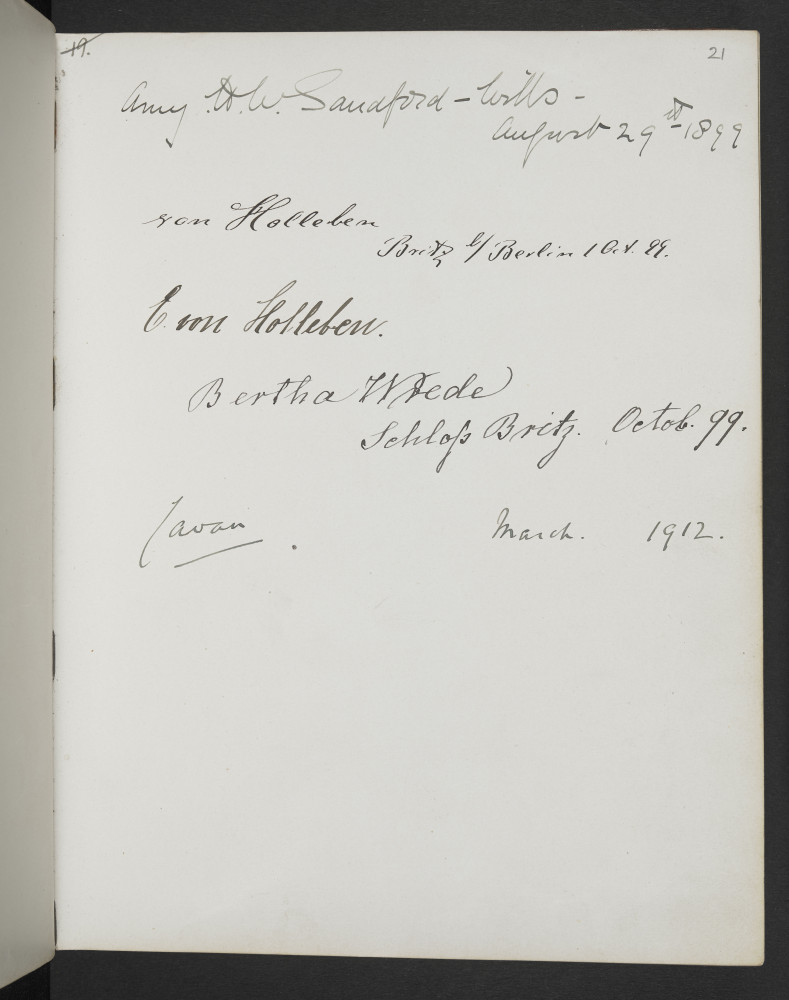 19.
21
Amy H. W. Sandford-Wills-
August 29th 1899
von Holleben
Britz b/ Berlin 1 Oct. 99.
E. von Holleben.
Bertha Wrede
Schloß Britz. Octob. 99.
Cavan.
March. 1912.